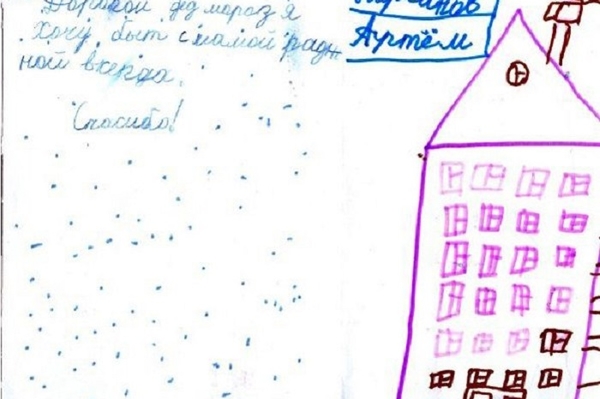 Дорогой дед мороз я
Хочу быт с мамой
ной
Спасибо!
Артём